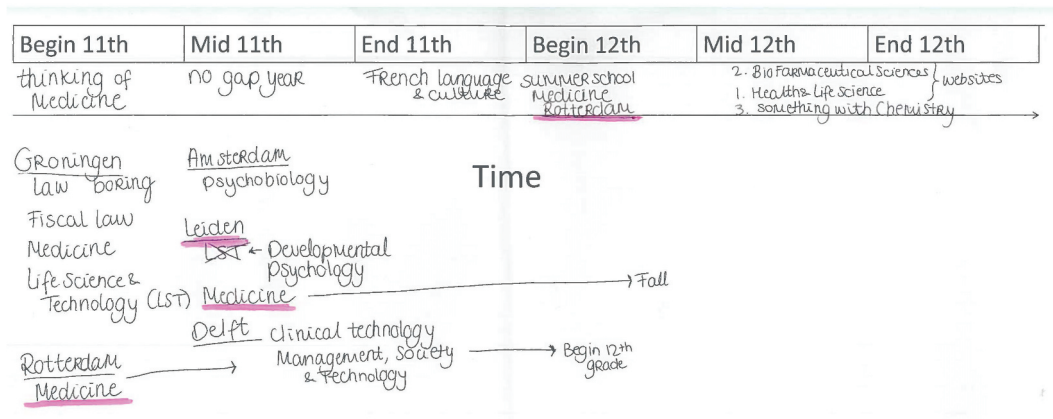 Begin 11th Mid 11th End 11th Begin 12th Mid 12th End 12th
thinking of
Medicine
no gap year
French language
& culture
summerschool
Medicine
Rotterdam
2. BioFarmaceutical Sciences
1. Health & Life Science
3. something with Chemistry
websites
Time
Groningen
Law boring
Fiscal law
Medicine
Life Science &
Technology (LST)
Rotterdam
Medicine
Amsterdam
psychobiology
Leiden
LST ← Developmental
Psychology
Medicine → Fall
Delft Clinical technology
Management, Society
& Technology
→ Begin 12th
grade